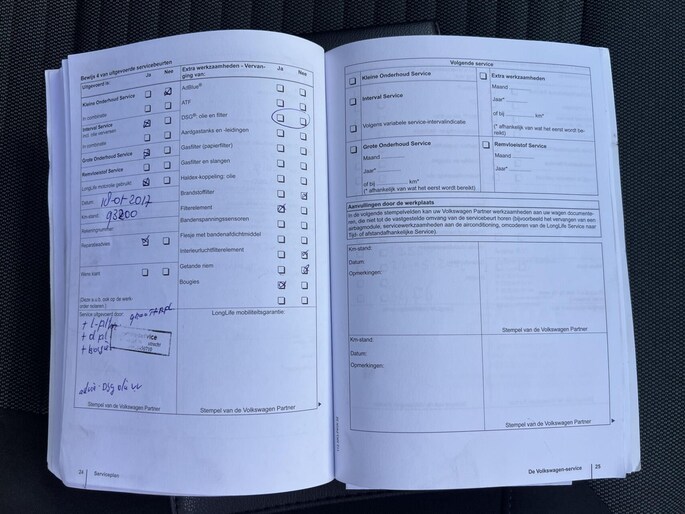 Bewijs 4 van uitgevoerde servicebeurten
Uitgevoerd in: Ja Nee
Kleine Onderhoud Service
In combinatie
Interval Service
incl. olie verversen
In combinatie
Grote Onderhoud Service
Remvloeistof Service
LongLife motorolie gebruikt:
Datum: 18-01-2017
Km-stand: 93200
Rekeningnummer:
Reparatieadvies
Wens klant
(Deze a.u.b. ook op de werkorder noteren.)
Service uitgevoerd door:
advies DSG olie
Stempel van de Volkswagen Partner
Extra werkzaamheden - Vervanging van: Ja Nee
AdBlue®
ATF
DSG®: olie en filter
Aardgastanks en -leidingen
Gasfilter (papierfilter)
Gasfilter en slangen
Haldex-koppeling: olie
Brandstoffilter
Filterelement
Bandenspanningssensoren
Flesje met bandenafdichtmiddel
Interieurluchtfilterelement
Getande riem
Bougies
LongLife mobiliteitsgarantie:
Stempel van de Volkswagen Partner
24 Serviceplan
Volgende service
Kleine Onderhoud Service
Interval Service
Volgens variabele service-intervalindicatie
Extra werkzaamheden
Maand
Jaar*
of bij km*
(* afhankelijk van wat het eerst wordt bereikt)
Grote Onderhoud Service
Maand
Jaar*
of bij km*
(* afhankelijk van wat het eerst wordt bereikt)
Remvloeistof Service
Maand
Jaar*
Aanvullingen door de werkplaats
In de volgende stempelvelden kan uw Volkswagen Partner werkzaamheden aan uw wagen documenteren,
die niet tot de vastgestelde omvang van de servicebeurt horen (bijvoorbeeld het vervangen van een
airbagmodule, servicewerkzaamheden aan de airconditioning, omcoderen van de LongLife Service naar
Tijd- of afstandafhankelijke Service).
Km-stand:
Datum:
Opmerkingen:
Stempel van Volkswagen Partner
Km-stand:
Datum:
Opmerkingen:
Stempel van de Volkswagen Partner
De Volkswagen-service 25